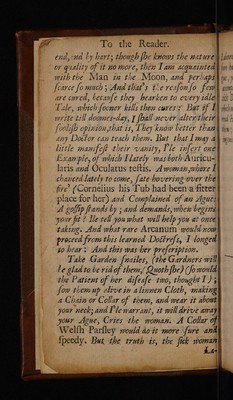 To the Reader.
end, nd by hart; though she knows the nature
or quality of it no more, then I am acquainted
with the Man in the Moon, and perhaps
scarce so much; And that's the reason so few
are cured, because they hearken to every idle
Tale, which sooner kills then cures; But if I
write till doomes-day, I shall never alter their
foolish opinion, that is, They know better than
any Doctor can teach them. But that I may a
little manifest their vanity, I'le insert one
Example, of which I lately was both Auricu-
laris and Oculatus testis. A woman, where I
chanced lately to come, sate hovering over the
fire (Cornelius his Tub had been a fitter
place for her) and Complained of an Ague:
A gossip stands by; and demands, when begins
your fit? Ile tell you what will help you at once
taking. And what rare Arcanum would now
proceed from this learned Doctress, I longed
to hear: And this was her prescription.
Take Garden snailes, (the Gardners will
be glad to be rid of them, Quoth she) (so would
the Patient of her disease two, thought I);
sow them up alive in a linnen Cloth, making
a Chain or Collar of them, and wear it about
your neck; and I'le warrant, it will drive away
your Ague, Cries the woman. A Collar of
Welsh Parsley would do it more sure and
speedy. But the truth is, the sick woman